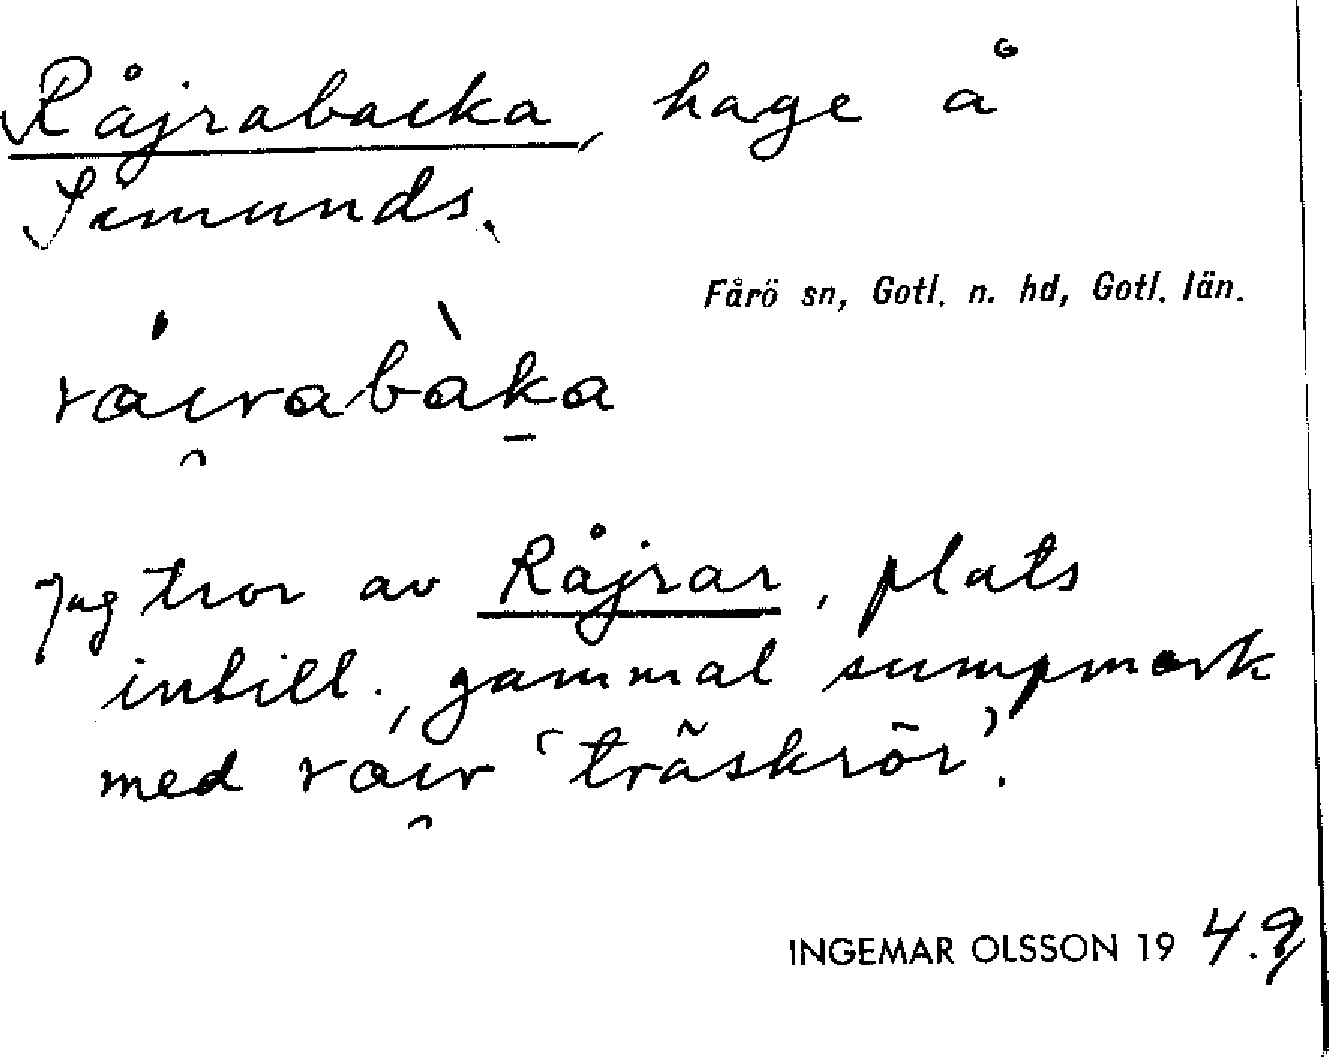 Råjrabacka, hage å
Simunds.
Fårö sn, Gotl. n. hd, Gotl. län.
råi̯rabàka
Jag tror av Råjrar, plats
intill, gammal sumpmark
med råi̯r 'träskrör'.
INGEMAR OLSSON 1949